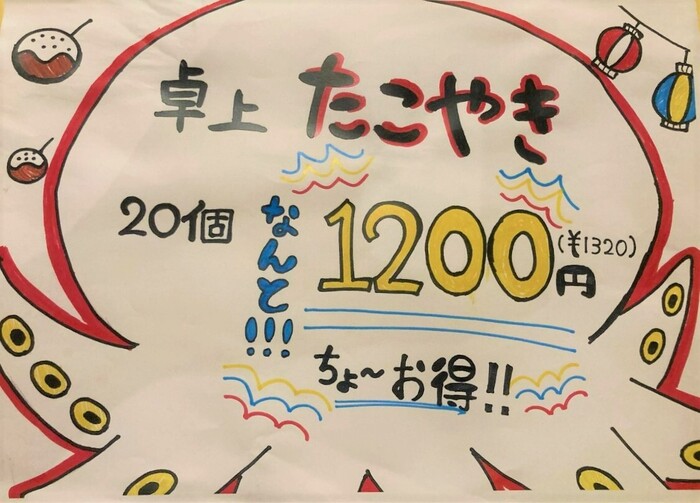 卓上 たこやき
20個
なんと!!!
1200円
(¥1320)
ちょ〜お得!!